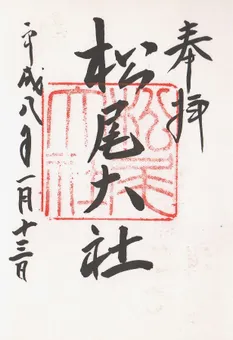 奉拝
松尾大社
平成八年一月十三日
松尾大社